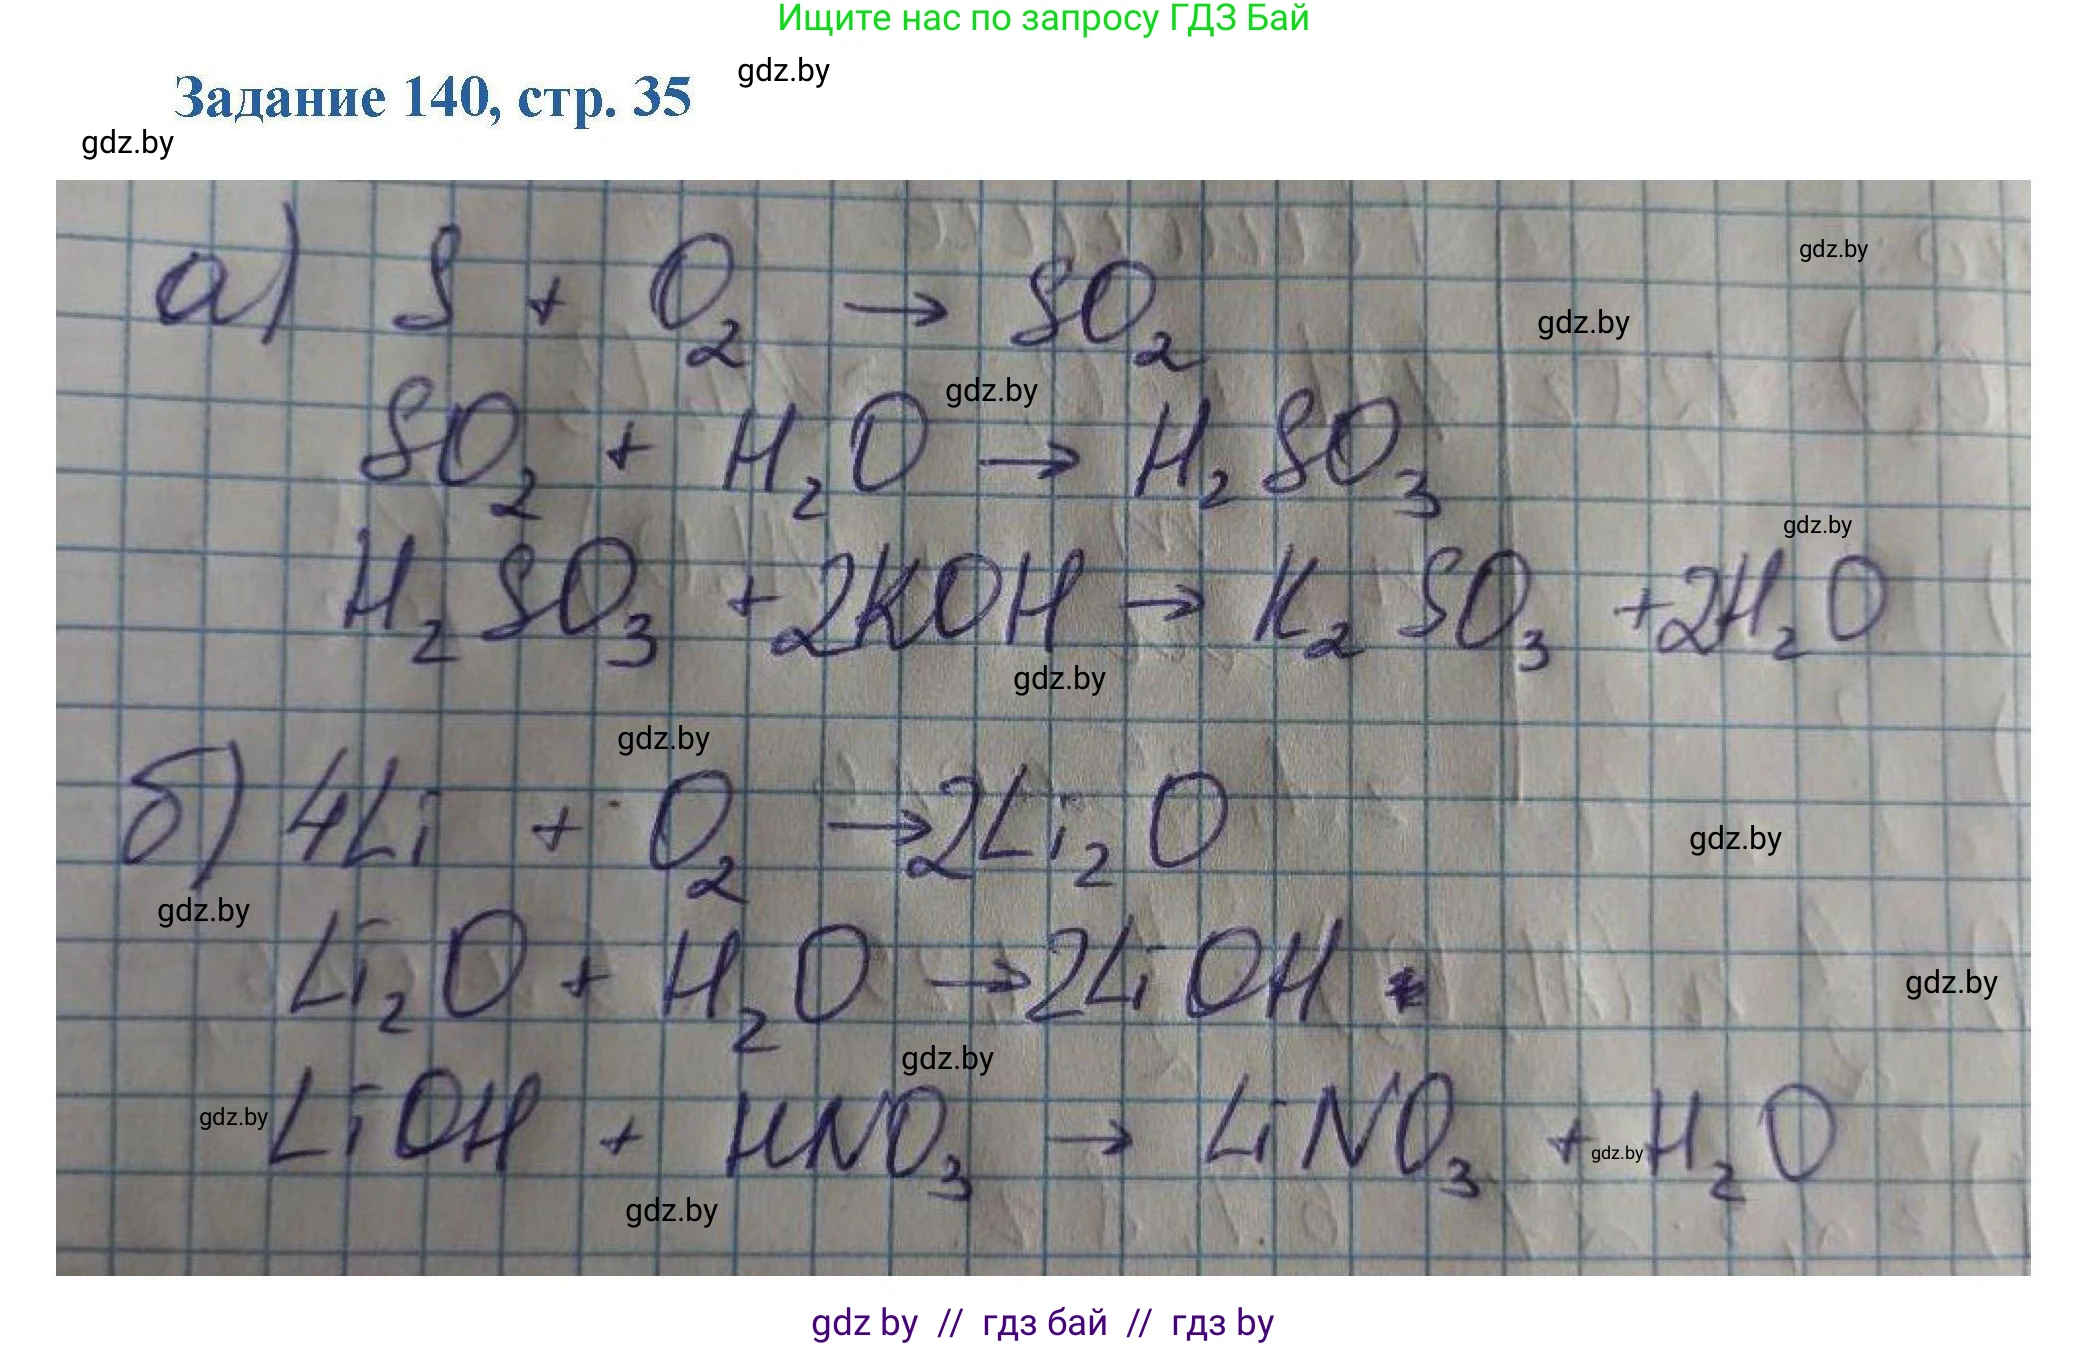 Ищите нас по запросу ГДЗ Бай
gdz.by
Задание 140, стр. 35
gdz.by
а) S + O₂ → SO₂
gdz.by
gdz.by
gdz.by
SO₂ + H₂O → H₂SO₃
gdz.by
H₂SO₃ + 2KOH → K₂SO₃ + 2H₂O
gdz.by
gdz.by
б) 4Li + O₂ → 2Li₂O
gdz.by
gdz.by
Li₂O + H₂O → 2LiOH
gdz.by
gdz.by
gdz.by
LiOH + HNO₃ → LiNO₃ + H₂O
gdz.by
gdz.by
gdz by // гдз бай // гдз by